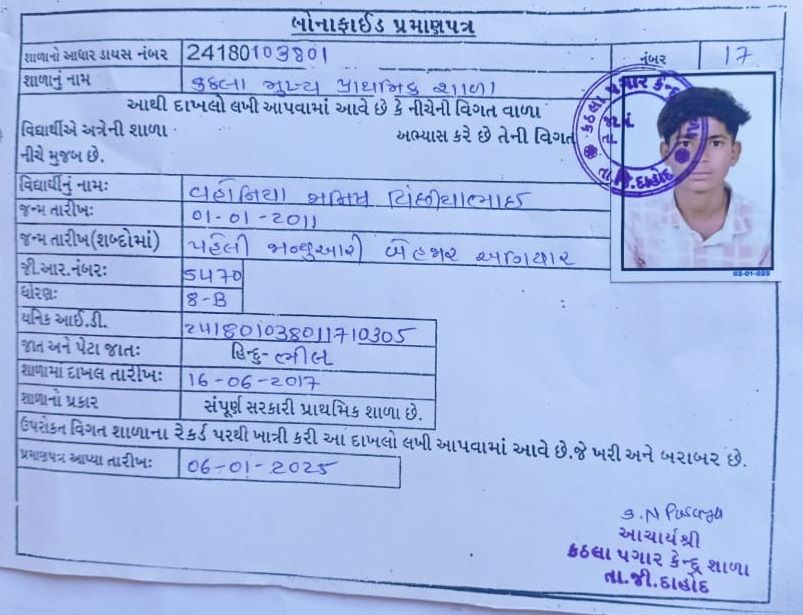 બોનાફાઈડ પ્રમાણપત્ર
શાળાનો આધાર ડાયસ નંબર 24180103801 નંબર 17
શાળાનું નામ કઠલા મુખ્ય પ્રાથમિક શાળા
આથી દાખલો લખી આપવામાં આવે છે કે નીચેની વિગત વાળા
વિદ્યાર્થીએ અત્રેની શાળા અભ્યાસ કરે છે તેની વિગત
નીચે મુજબ છે.
વિદ્યાર્થીનું નામઃ વહોનિયા
જન્મ તારીખઃ 01-01-2011
જન્મ તારીખ(શબ્દોમાં) પહેલી જાન્યુઆરી બેહજાર અગિયાર
જી.આર.નંબરઃ 5470
ધોરણઃ 8-B
યુનિક આઈ.ડી. 241801038011710305
જાત અને પેટા જાતઃ હિન્દુ-ભીલ
શાળામાં દાખલ તારીખઃ 16-06-2017
શાળાનો પ્રકાર સંપૂર્ણ સરકારી પ્રાથમિક શાળા છે.
ઉપરોકત વિગત શાળાના રેકર્ડ પરથી ખાત્રી કરી આ દાખલો લખી આપવામાં આવે છે.જે ખરી અને બરાબર છે.
પ્રમાણપત્ર આપ્યા તારીખઃ 06-01-2025
કઠલા પગાર કેન્દ્ર
તા.જી.દાહોદ
આચાર્યશ્રી
કઠલા પગાર કેન્દ્ર શાળા
તા.જી.દાહોદ